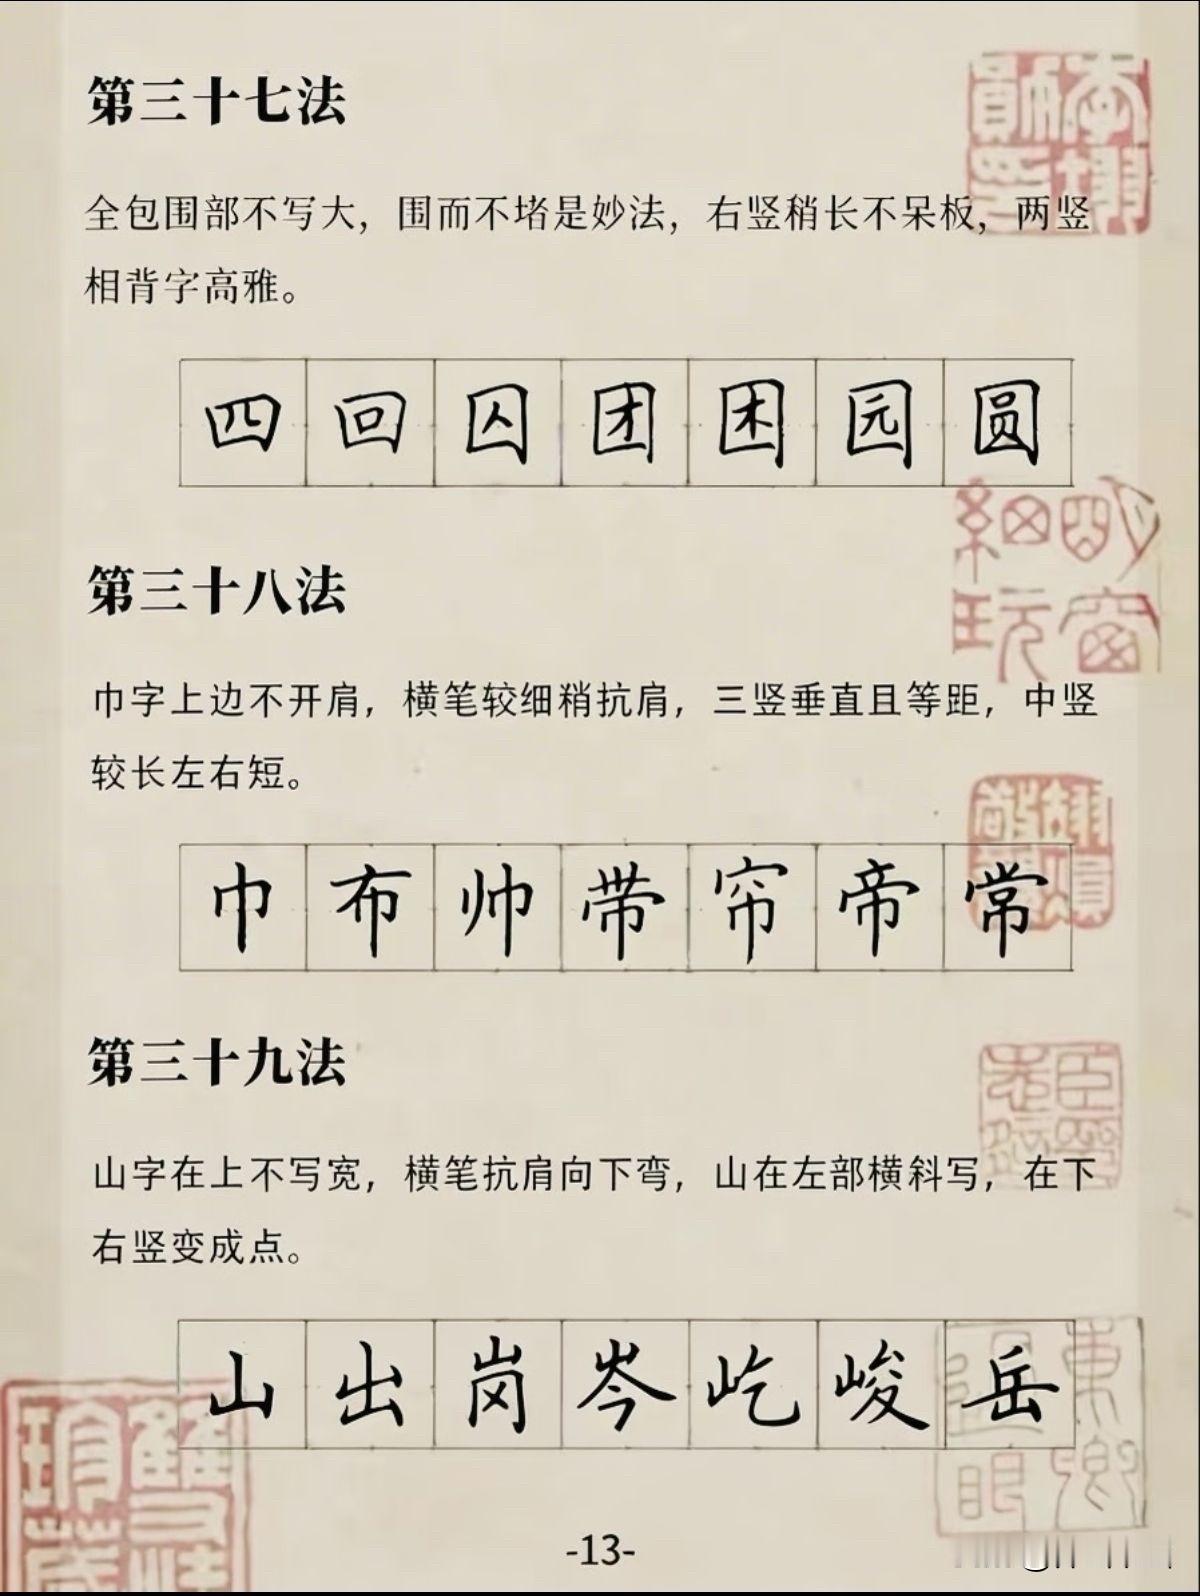 第三十七法
全包围部不写大，围而不堵是妙法，右竖稍长不呆板，两竖
相背字高雅。
四回囚团困园圆
第三十八法
巾字上边不开肩，横笔较细稍抗肩，三竖垂直且等距，中竖
较长左右短。
巾布帅带帘帝常
第三十九法
山字在上不写宽，横笔抗肩向下弯，山在左部横斜写，在下
右竖变成点。
山出岗岑屹峻岳
-13-